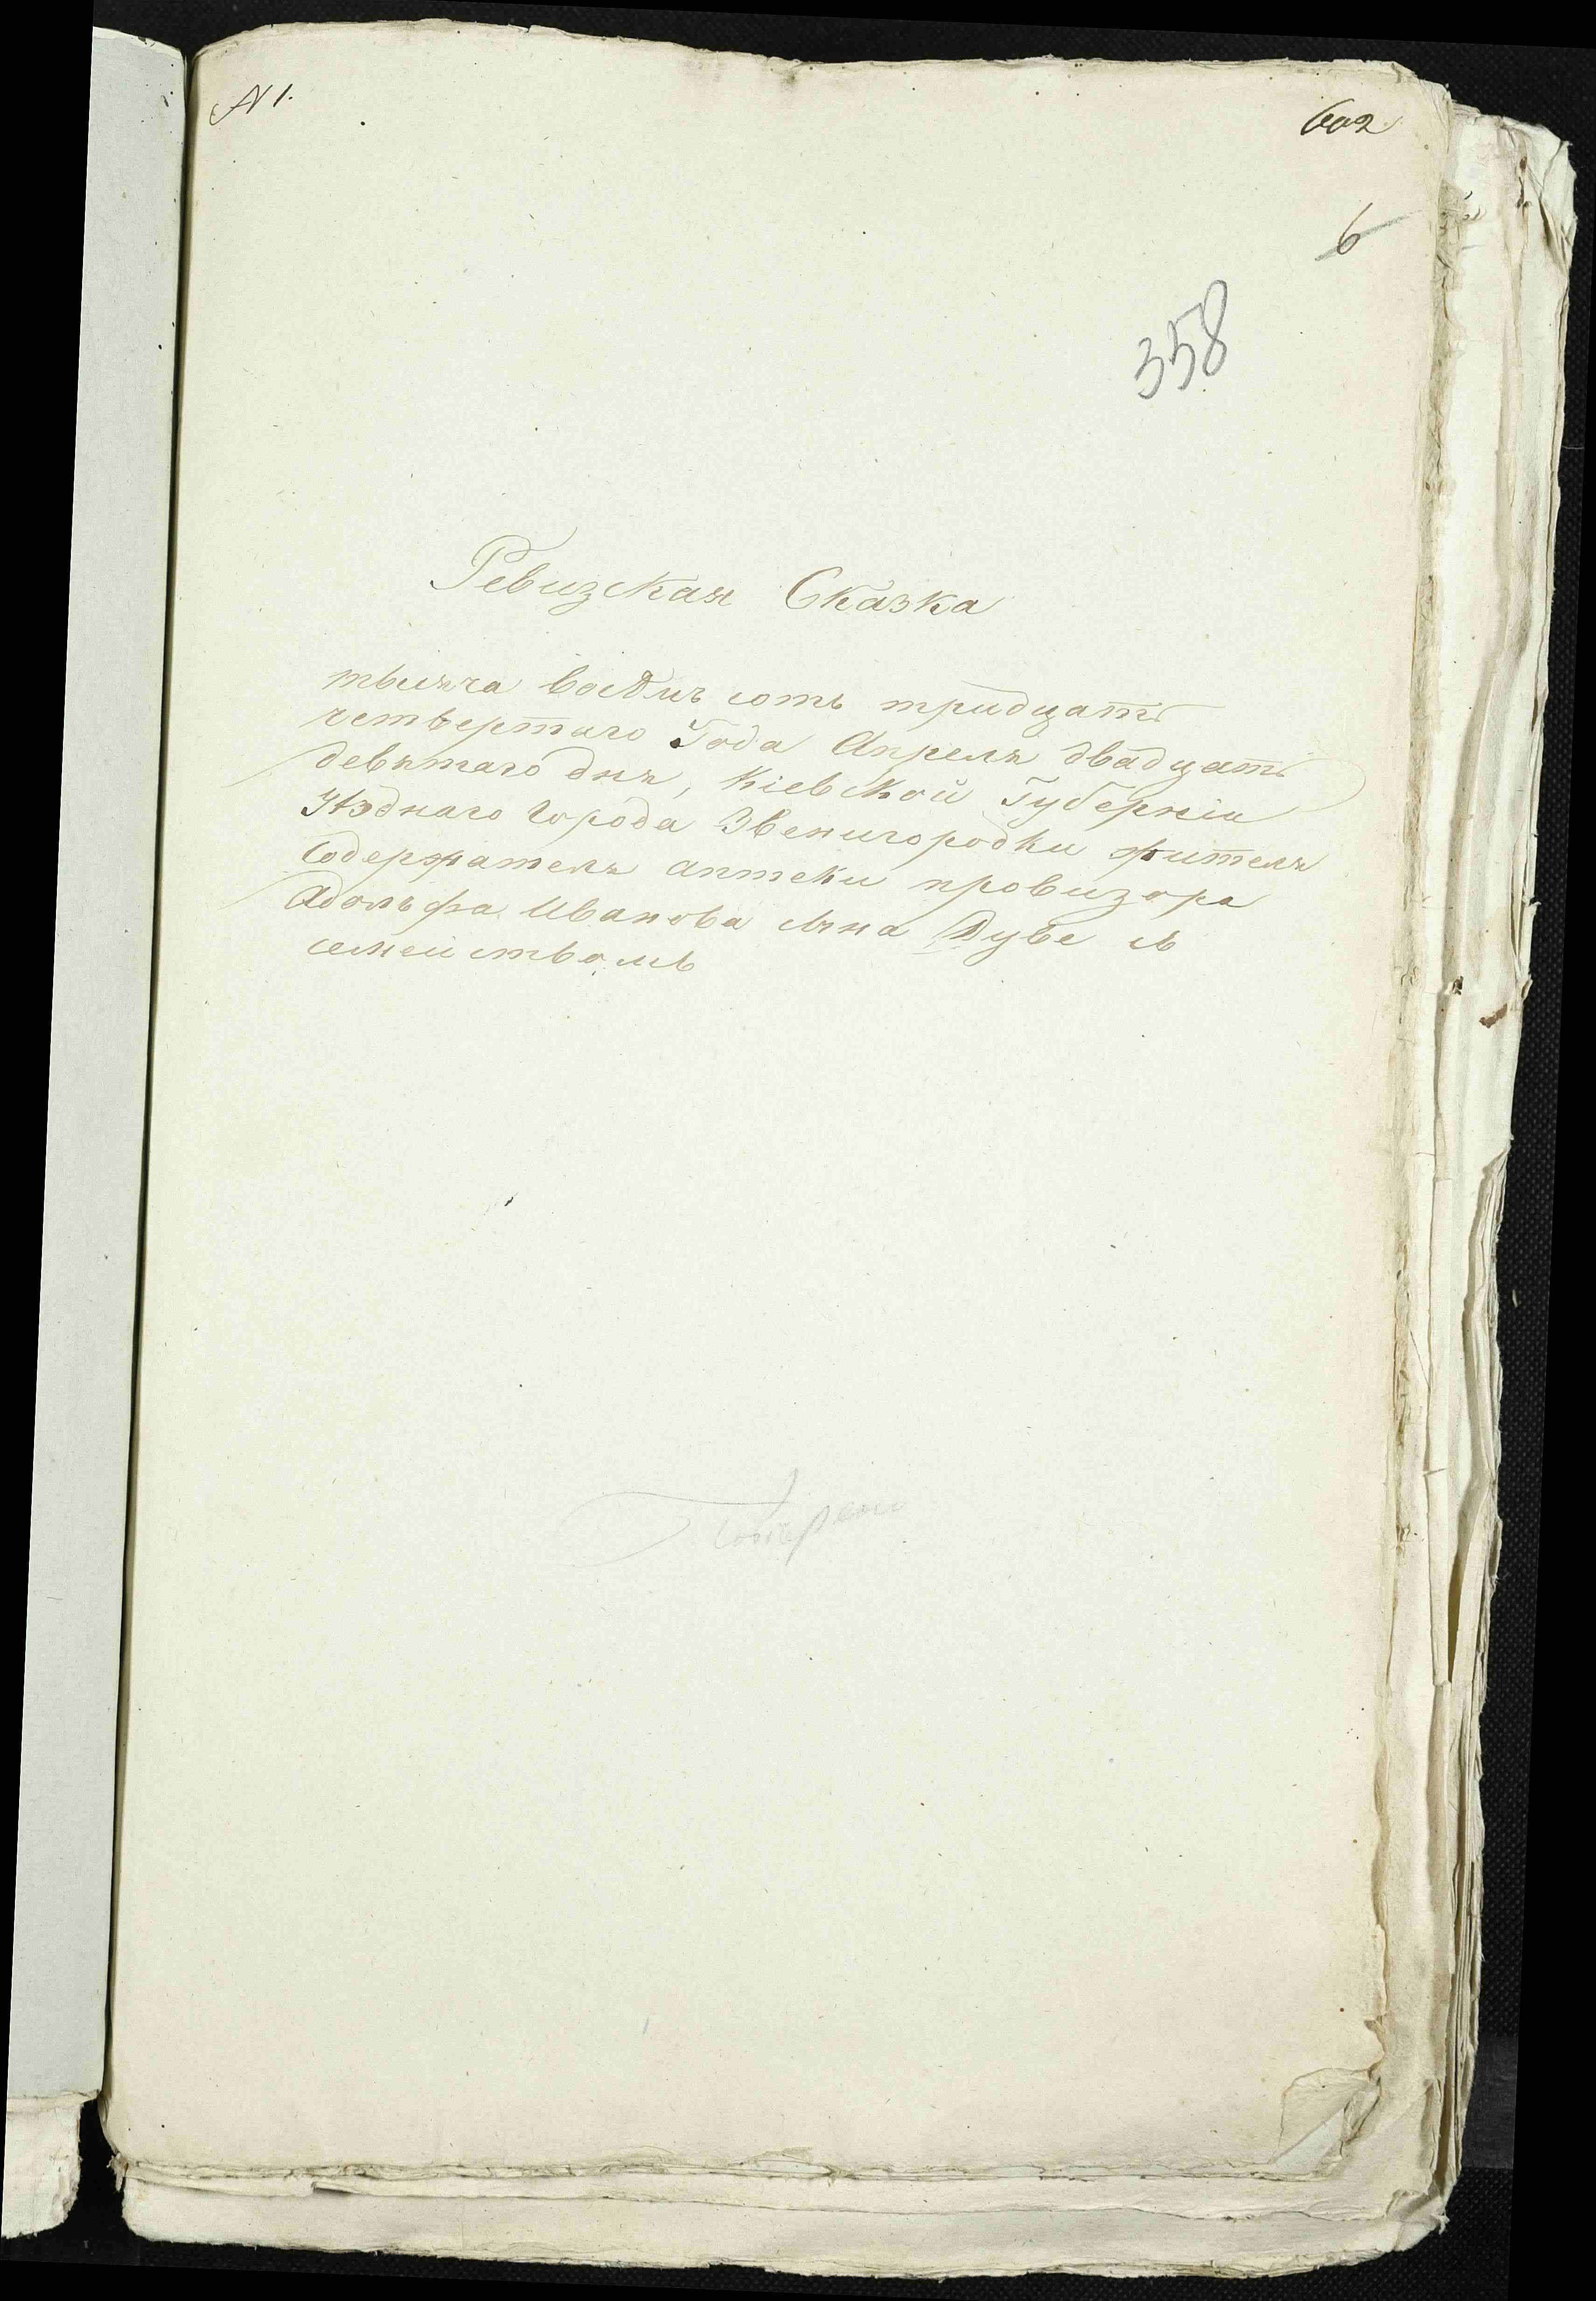 N 1.
602
6
358
Ревизская Сказка
тысяча восемъ сотъ тридцать
четвертаго Года Апреля двадцать
девятаго дня, Кіевской Губерніи
Уѣзднаго Города Звенигородки жителя
Содержателя аптеки провизора
Адольфа Иванова сына Дубе съ
семействомъ